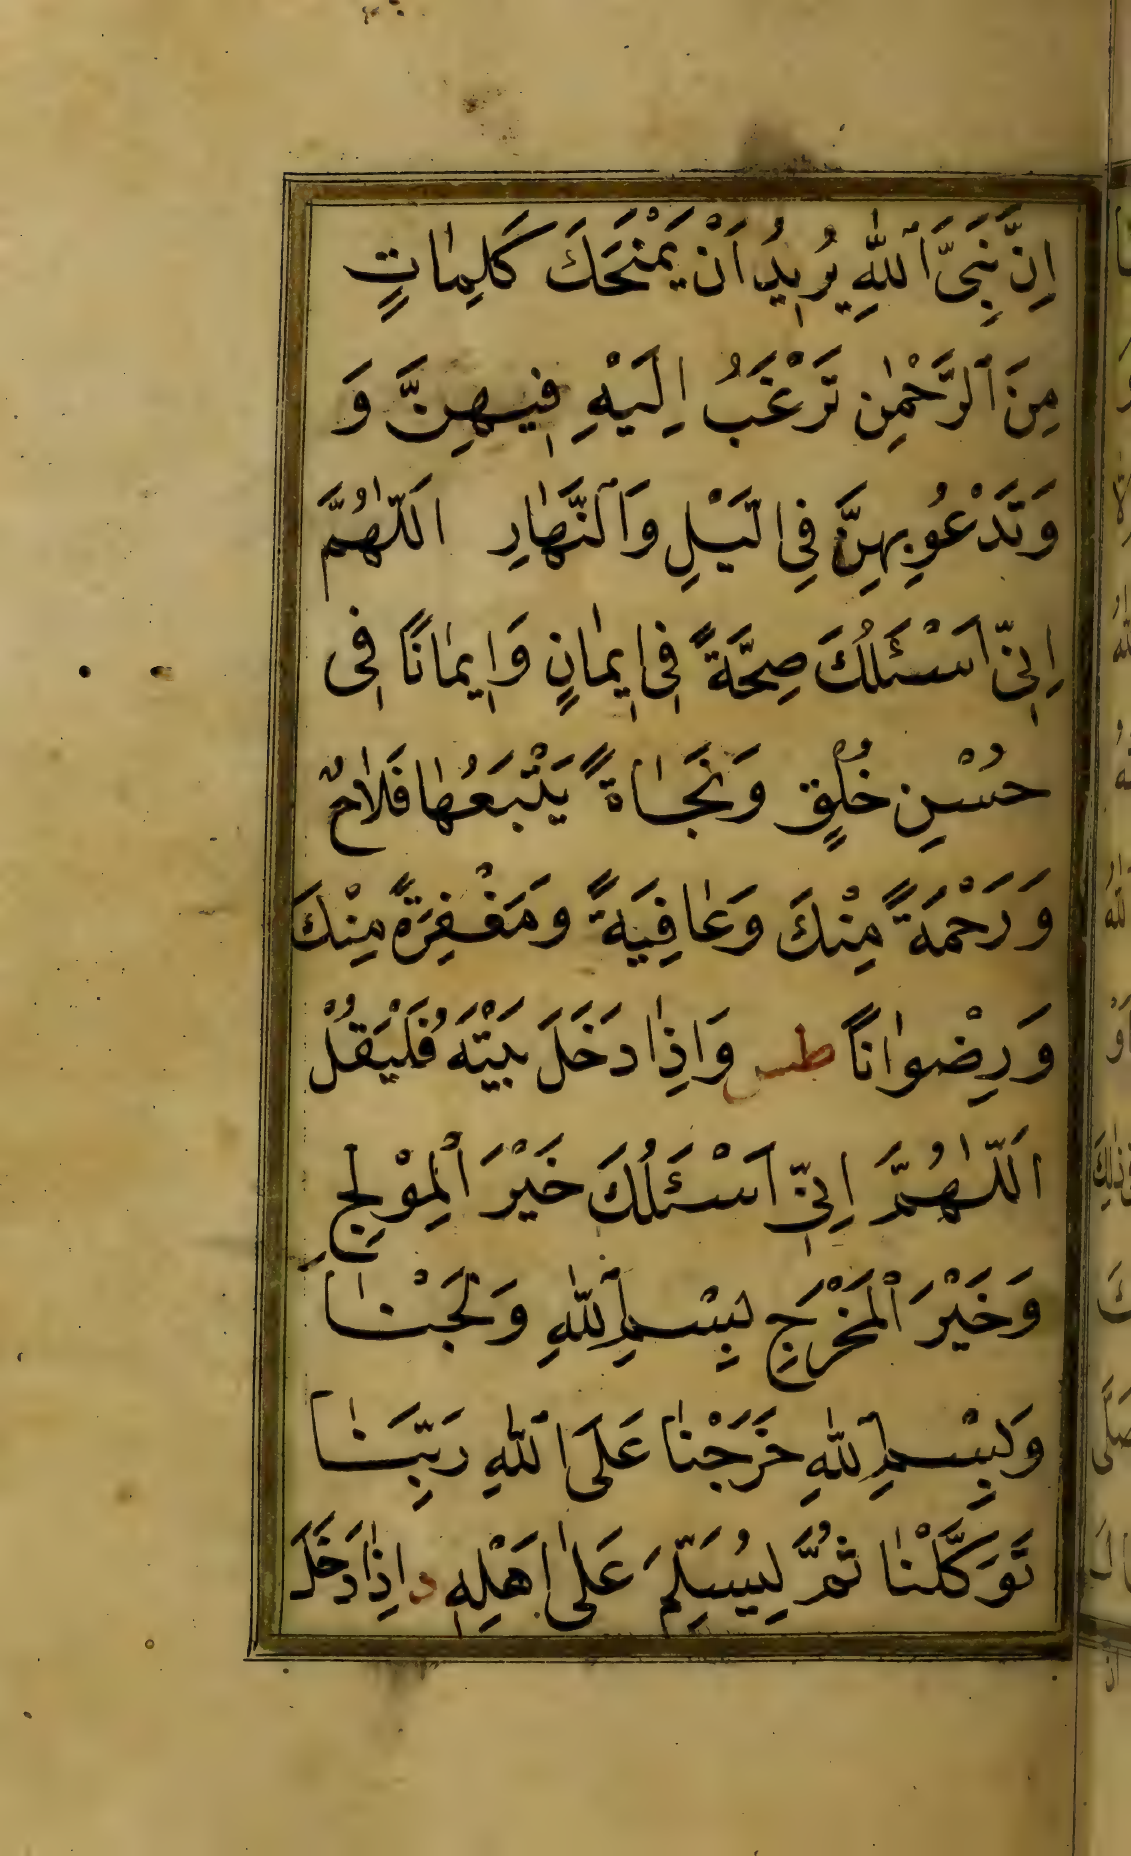 اِنَّ نَبِىَّ ٱللّٰهِ يُرِيدُ اَنْ يَمْنَحَكَ كَلِمٰاتٍ
مِنَ ٱلرَّحْمٰنِ تَرْغَبُ اِلَيْهِ فِيهِنَّ وَ
وَتَدْعُو بِهِنَّ فِى الَّيْلِ وَٱلنَّهٰارِ اَللّٰهُمَّ
اِنِّى اَسْئَلُكَ صِحَّةً فِى اِيمٰانٍ وَاِيمٰانًا فِى
حُسْنِ خُلُقٍ وَنَجٰاةً يَتْبَعُهٰا فَلٰاحٌ
وَرَحْمَةً مِنْكَ وَعٰافِيَةً وَمَغْفِرَةً مِنْكَ
وَرِضْوٰانًا طس وَاِذٰا دَخَلَ بَيْتَهُ فَلْيَقُلْ
اَللّٰهُمَّ اِنِّى اَسْئَلُكَ خَيْرَ ٱلْمَوْلِجِ
وَخَيْرَ ٱلْمَخْرَجِ بِسْمِ ٱللّٰهِ وَلَجْنٰا
وَبِسْمِ ٱللّٰهِ خَرَجْنٰا عَلَى ٱللّٰهِ رَبِّنٰا
تَوَكَّلْنٰا ثُمَّ لِيُسَلِّمَ عَلٰى اَهْلِهِ د اِذٰا دَخَلَ